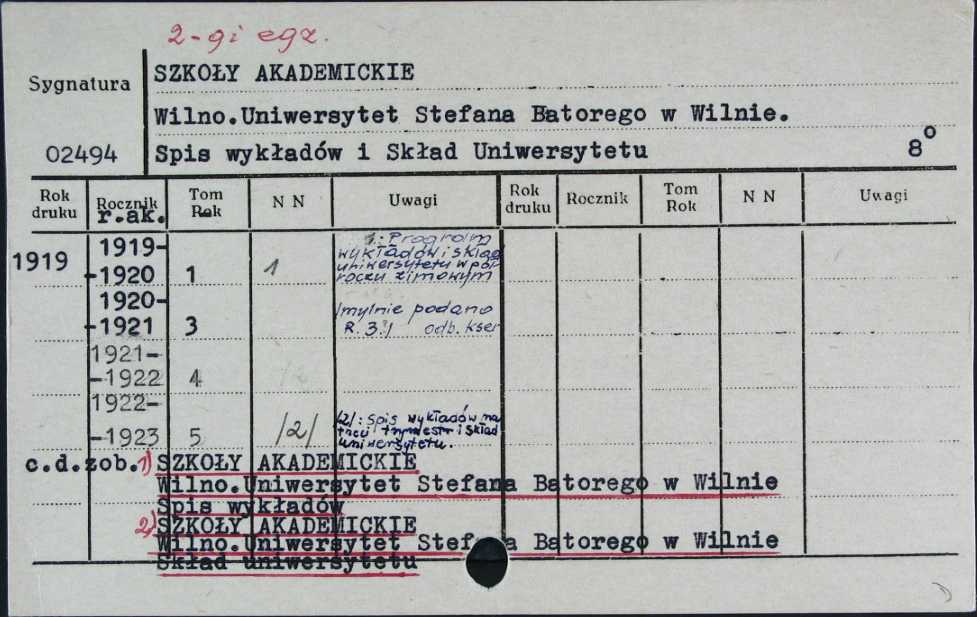 2-gi egz.
Sygnatura
SZKOŁY AKADEMICKIE
Wilno.Uniwersytet Stefana Batorego w Wilnie.
02494
Spis wykładów i Skład Uniwersytetu 8°
Rok druku Rocznik r.ak. Tom Rok N N Uwagi Rok druku Rocznik Tom Rok N N Uwagi
1919 1919-
-1920 1 1
1: Program
wykładów i skład
uniwersytetu w pół-
roczu zimowym
1920-
-1921 3
/mylnie podano
R. 3./ odb. kser
1921-
-1922 4
1922-
-1923 5 /2/
/2/: Spis wykładów na
trzeci trymestr i skład
uniwersytetu.
c.d.zob. 1) SZKOŁY AKADEMICKIE
Wilno.Uniwersytet Stefana Batorego w Wilnie
Spis wykładów
2) SZKOŁY AKADEMICKIE
Wilno.Uniwersytet Stefana Batorego w Wilnie
Skład uniwersytetu